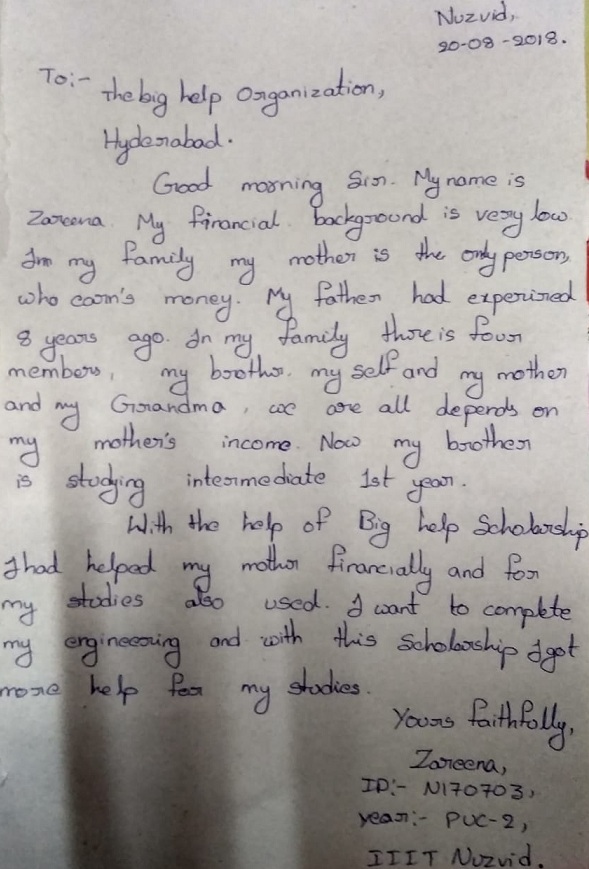 Nuzvid,
20-08-2018.
To:-
The big help Organization,
Hyderabad.
Good morning Sir. My name is
Zareena. My financial background is very low.
In my family my mother is the only person,
who earn's money. My father had experired
8 years ago. In my family there is four
members, my brother. my self and my mother
and my Grandma, we are all depends on
my mother's income. Now my brother
is studying intermediate 1st year.
With the help of Big help Scholarship
I had helped my mother financially and for
my studies also used. I want to complete
my engineering and with this Scholarship I got
more help for my studies.
Yours faithfully,
Zareena,
ID:- N170703,
year:- PUC-2,
IIIT Nuzvid.